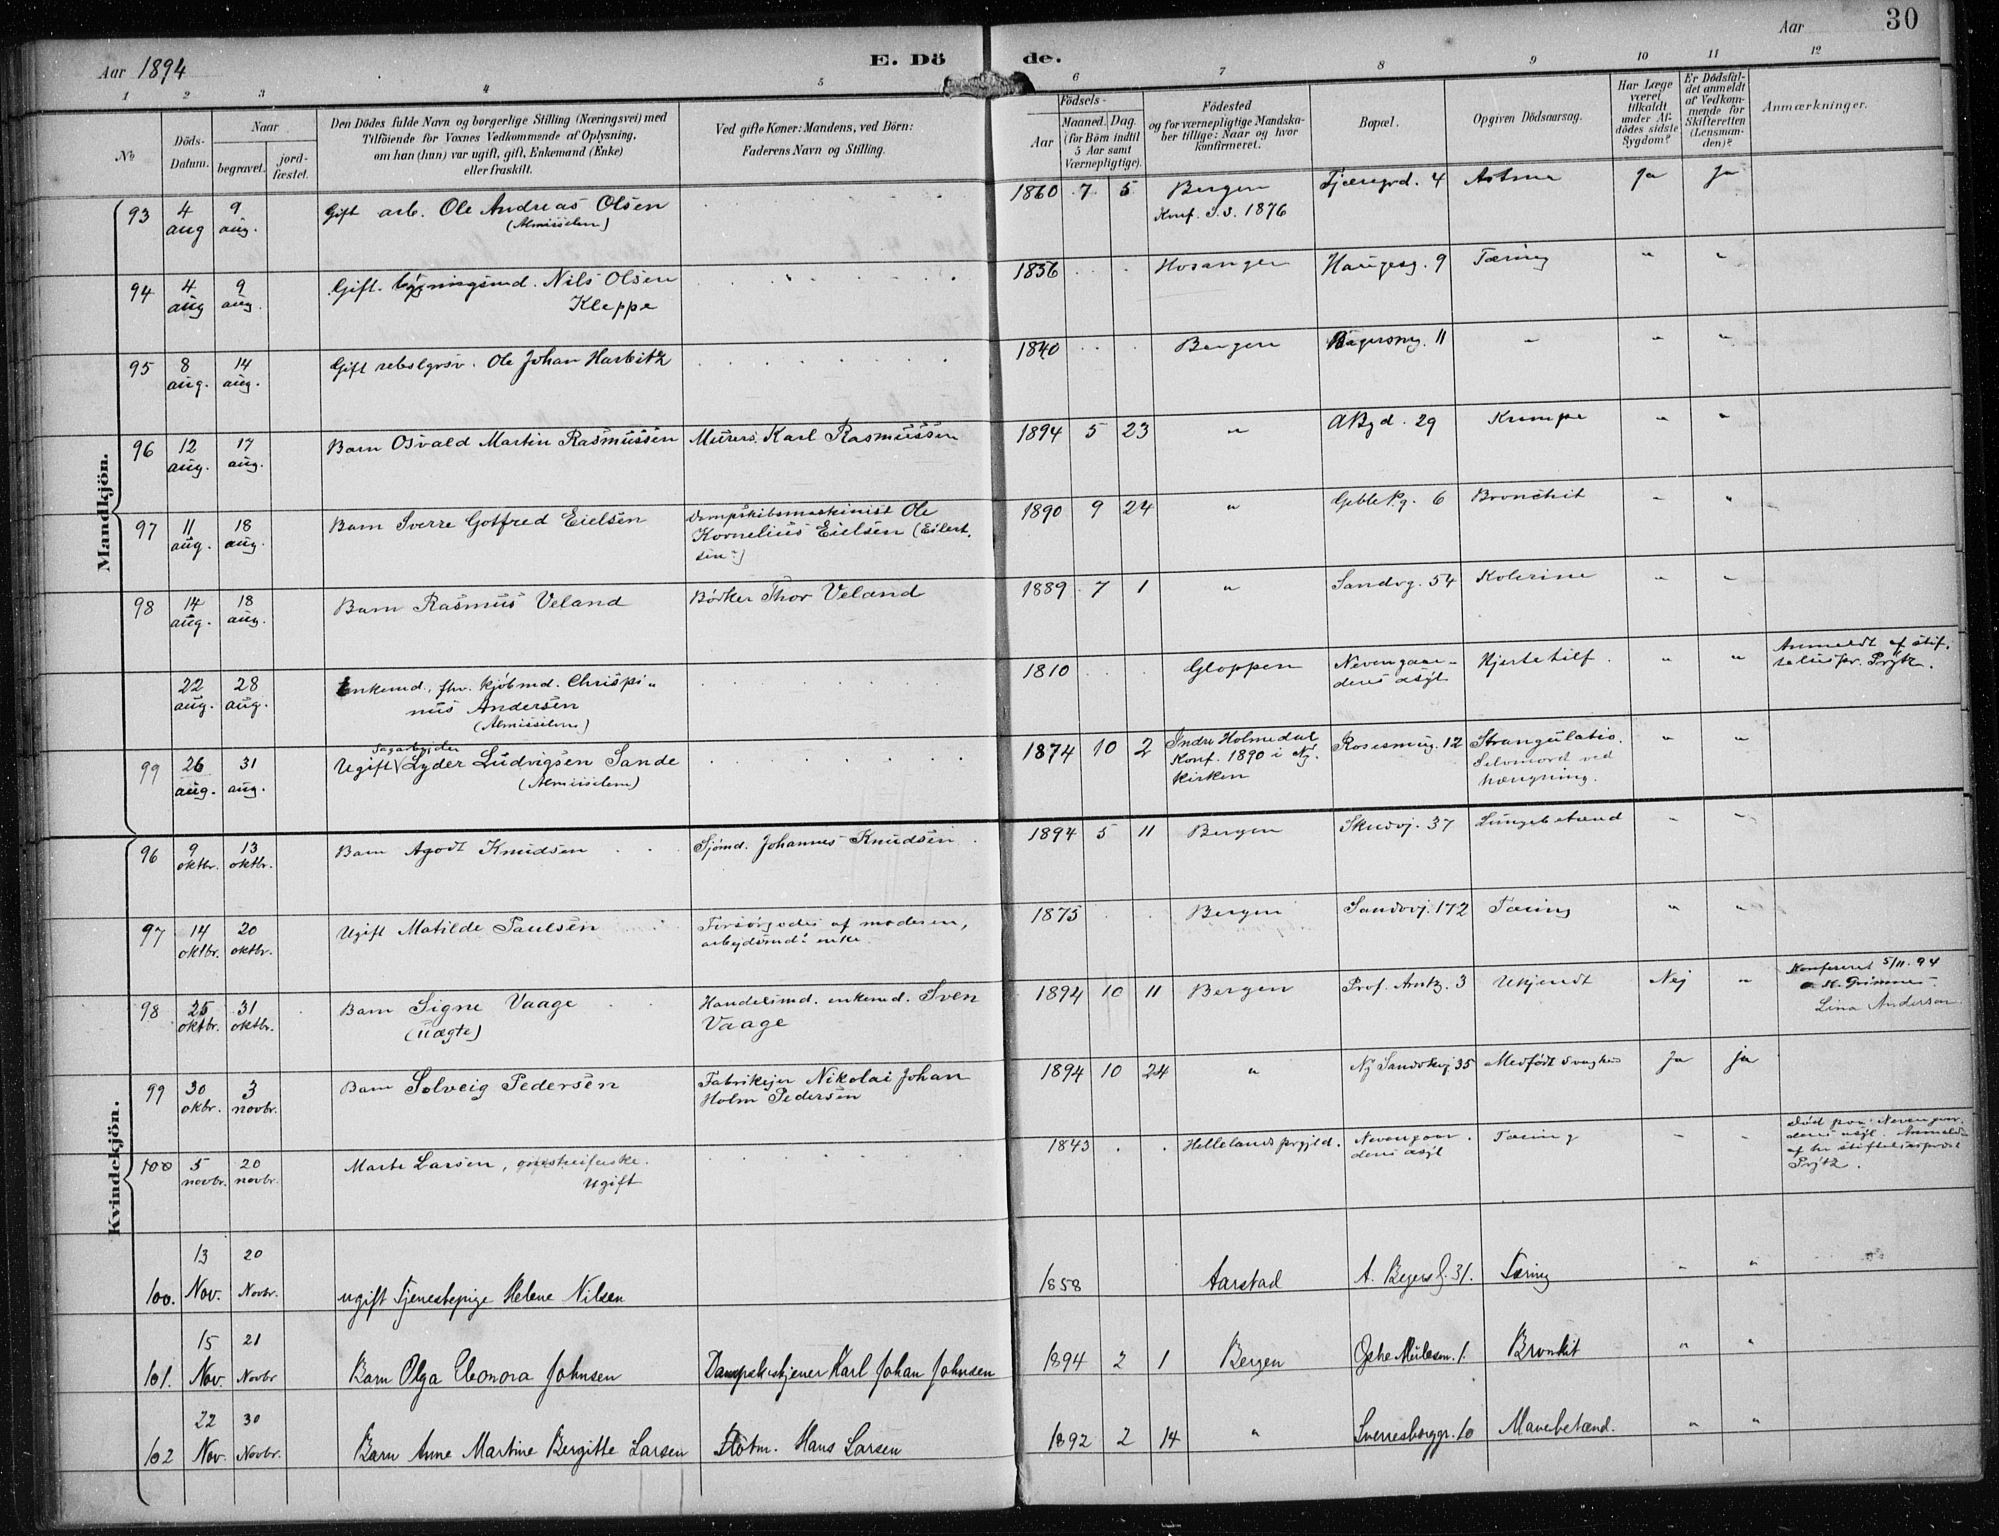 Aar 1894 E. Dö de. Aar 30
1 2 3 4 5 6 7 8 9 10 11 12
No
Döds-Datum.
Naar
begravet.
jord-fæstet.
Den Dödes fulde Navn og borgerlige Stilling (Næringsvei) med
Tilföiende for Voxnes Vedkommende af Oplysning,
om han (hun) var ugift, gift, Enkemand (Enke)
eller fraskilt.
Ved gifte Koner: Mandens, ved Börn:
Faderens Navn og Stilling.
Födsels-
Aar
Maaned. Dag.
(for Börn indtil
5 Aar samt
Værnepligtige).
Födested
og for værnepligtige Mandska-
ber tillige: Naar og hvor
konfirmeret.
Bopæl.
Opgiven Dödsaarsag.
Har Læge
været
tilkaldt
under Af-
dödes sidste
Sygdom?
Er Dödsfal-
det anmeldt
af Vedkom-
mende for
Skifteretten
(Lensman-
den)?
Anmærkninger.
Mandkjön.
93 4 aug 9 aug. Gift arb. Ole Andreas Olsen 1860 7 5 Bergen Tjæregrd. 4 Astma Ja Ja
(Almisselem) Konf. 1876
94 4 aug 9 aug. Gift. bygningsmd. Nils Olsen 1856 Hosanger Haugesg. 9 Tæring " "
Kleppe
95 8 aug. 14 aug. Gift Ole Johan Harbitz 1840 Bergen 11 " " "
96 12 aug. 17 aug. Barn Osvald Martin Rasmussen Murers. Karl Rasmussen 1894 5 23 " 29 Krampe " "
97 11 aug. 18 aug. Barn Sverre Gotfred Eielsen Dampskibsmaskinist Ole 1890 9 24 " 6 Bronchit " "
Kornelius Eielsen (Eilert.
sen?)
98 14 aug. 18 aug. Barn Rasmus Veland Bödker Thor Veland 1889 7 1 " Sandvg. 54 Kolerine " "
22 aug. 28 aug. Enkemd. fhv. kjöbmd. Chrispi- 1810 Gloppen Nevengaar- Hjertetilf. " " Anmeldt af stif.
nus Andersen dens asyl telsespr. Prytz.
(Almisselem)
99 26 aug. 31 aug. Ugift Sagarbejder Lyder Ludvigsen Sande 1874 10 2 Indre Holmedal Rosesmug. 12 Strangulatio. " "
(Almisselem) Konf. 1890 i Ny- Selvmord ved
kirken hængning.
Kvindekjön.
96 9 oktbr. 13 oktbr. Barn Agodt Knudsen Sjömd. Johannes Knudsen 1894 5 11 Bergen Skudvj. 37 Lungebetænd " "
97 14 oktbr. 20 oktbr. Ugift Matilde Paulsen Forsörgedes af moderen, 1875 Bergen Sandvj. 172 Tæring " "
arbejdsmds enke
98 25 oktbr. 31 oktbr. Barn Signe Vaage Handelsmd. enkemd. Sven 1894 10 11 Bergen Prof. 3 Ukjendt Nej " Konfereret 5/11.94
(uægte) Vaage Grimnes
Lina Anderson
99 30 oktbr. 3 novbr. Barn Solveig Pedersen Fabrikejer Nikolai Johan 1894 10 24 " Ny Sandvikvj 35 Medfödt svaghed Ja ja
Holm Pedersen
100 5 novbr. 20 novbr. Marte Larsen, 1843 Hellelands prgjld. Nevengaar. Tæring " " Död paa Nevengaar
Ugift dens asyl dens asyl. Anmeldt
af hr stiftelsesprest
Prytz.
100. 13 Nov. 20 Novbr. ugift Tjenestepige Helene Nilsen 1858 Aarstad 31. Tæring " "
101. 15 Nov. 21 Novbr Barn Olga Eleonora Johnsen Karl Johan Johnsen 1894 2 1 Bergen 1. Bronkit " "
102 22 Nov. 30 Novbr. Barn Anne Martine Bergitte Larsen Hans Larsen 1892 2 14 " Sverresborggr. 10 Mavebetænd. " "